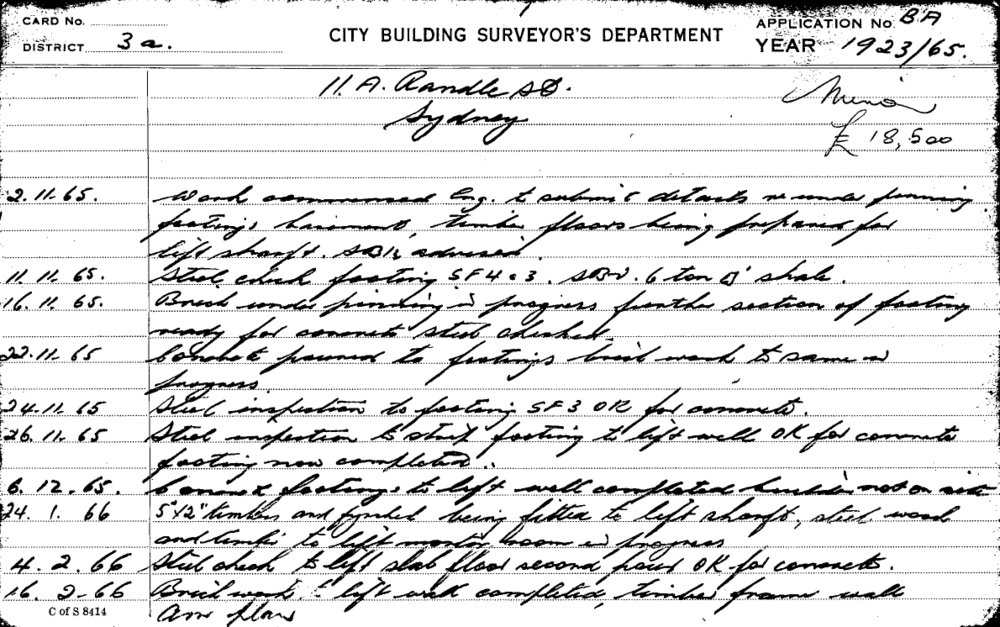 CARD No.
DISTRICT 3a.
CITY BUILDING SURVEYOR'S DEPARTMENT
APPLICATION No. BA
YEAR 1923/65.
11. A. Randle St.
Sydney
£ 18,500
2.11.65. Work commenced Eng. to submit details re under pinning
footings basement, timber floors being prepared for
lift shaft. advised.
11.11.65. Steel check footing SF4 3. 6 ton shale.
16.11.65. Brick under pinning in progress further section of footing
ready for concrete steel checked.
22.11.65 Concrete poured to footings brick work to same in
progress.
24.11.65 Steel inspection to footing SF3 OK for concrete.
26.11.65 Steel inspection to strip footing to lift well OK for concrete
footing now completed.
6.12.65. Concrete footings to lift well completed builder not on site
24.1.66 5"x2" timbers and being fitted to lift shaft, steel work
and timber to lift motor room in progress
4.2.66 Steel check to lift slab floor second pour OK for concrete.
16.2.66 Brick work to lift well completed, timber frame wall
plan
C of S 8414